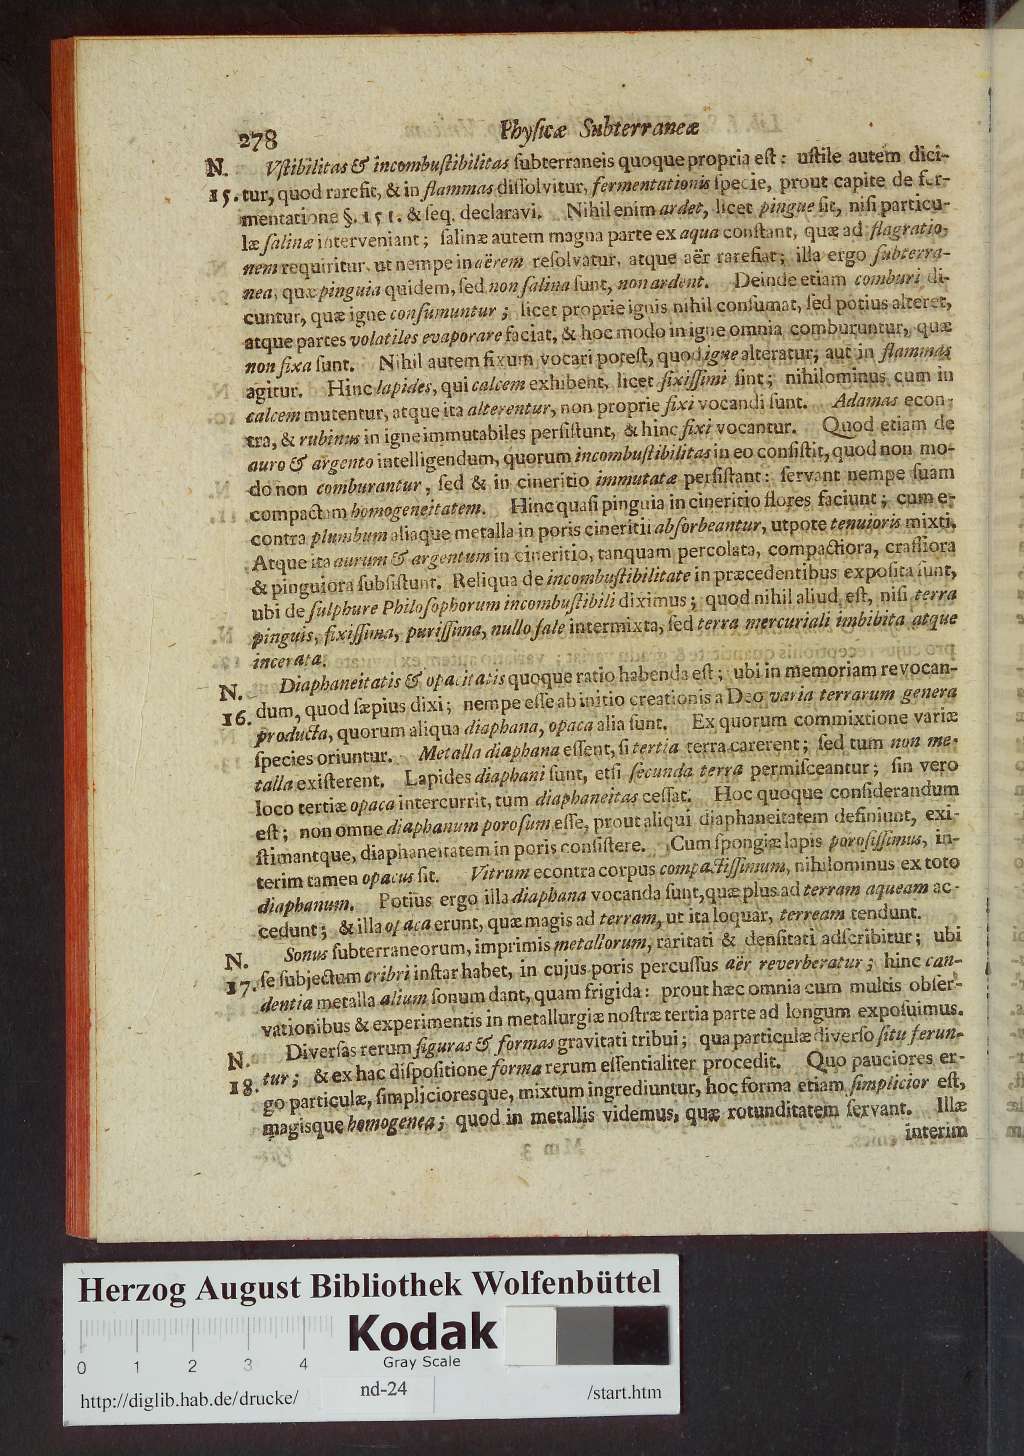 278 Phyſicæ Subterraneæ
N. Vſtibilitas & incombuſtibilitas ſubterraneis quoque propria eſt: uſtile autem dici-
15. tur, quod rarefit, & in flammas diſſolvitur, fermentationis ſpecie, prout capite de fer-
mentatione §. 151. & ſeq. declaravi. Nihil enim ardet, licet pingue ſit, niſi particu-
læ ſalinæ interveniant; ſalinæ autem magna parte ex aqua conſtant, quæ ad flagratio-
nem requiritur, ut nempe in aërem reſolvatur, atque aër rarefiat; illa ergo ſubterra-
nea, quæ pinguia quidem, ſed non ſalina ſunt, non ardent. Deinde etiam comburi di-
cuntur, quæ igne conſumuntur; licet proprie ignis nihil conſumat, ſed potius alteret,
atque partes volatiles evaporare faciat, & hoc modo in igne omnia comburuntur, quæ
non fixa ſunt. Nihil autem fixum vocari poteſt, quod igne alteratur, aut in flammas
agitur. Hinc lapides, qui calcem exhibent, licet fixiſſimi ſint; nihilominus cum in
calcem mutentur, atque ita alterentur, non proprie fixi vocandi ſunt. Adamas econ-
tra, & rubinus in igne immutabiles perſiſtunt, & hinc fixi vocantur. Quod etiam de
auro & argento intelligendum, quorum incombuſtibilitas in eo conſiſtit, quod non mo-
do non comburantur, ſed & in cineritio immutatæ perſiſtant: ſervant nempe ſuam
compactam homogeneitatem. Hinc quaſi pinguia in cineritio flores faciunt; cum e-
contra plumbum aliaque metalla in poris cineritii abſorbeantur, utpote tenuioris mixti.
Atque ita aurum & argentum in cineritio, tanquam percolata, compactiora, craſſiora
& pinguiora ſubſiſtunt. Reliqua de incombuſtibilitate in præcedentibus expoſita ſunt,
ubi de ſulphure Philoſophorum incombuſtibili diximus; quod nihil aliud eſt, niſi terra
pinguis, fixiſſima, puriſſima, nullo ſale intermixta, ſed terra mercuriali imbibita atque
incerata.
N. Diaphaneitatis & opacitatis quoque ratio habenda eſt; ubi in memoriam revocan-
16. dum, quod ſæpius dixi; nempe eſſe ab initio creationis a Deo varia terrarum genera
producta, quorum aliqua diaphana, opaca alia ſunt. Ex quorum commixtione variæ
ſpecies oriuntur. Metalla diaphana eſſent, ſi tertia terra carerent; ſed tum non me-
talla exiſterent. Lapides diaphani ſunt, etſi ſecunda terra permiſceantur; ſin vero
loco tertiæ opaca intercurrit, tum diaphaneitas ceſſat. Hoc quoque conſiderandum
eſt; non omne diaphanum poroſum eſſe, prout aliqui diaphaneitatem definiunt, exi-
ſtimantque, diaphaneitatem in poris conſiſtere. Cum ſpongiæ lapis poroſiſſimus, in-
terim tamen opacus ſit. Vitrum econtra corpus compactiſſimum, nihilominus ex toto
diaphanum. Potius ergo illa diaphana vocanda ſunt, quæ plus ad terram aqueam ac-
cedunt; & illa opaca erunt, quæ magis ad terram, ut ita loquar, terream tendunt.
N. Sonus ſubterraneorum, imprimis metallorum, raritati & denſitati adſcribitur; ubi
17. ſe ſubjectum cribri inſtar habet, in cujus poris percuſſus aër reverberatur; hinc can-
dentia metalla alium ſonum dant, quam frigida: prout hæc omnia cum multis obſer-
vationibus & experimentis in metallurgiæ noſtræ tertia parte ad longum expoſuimus.
N. Diverſas rerum figuras & formas gravitati tribui; qua particulæ diverſo ſitu ferun-
18. tur; & ex hac diſpoſitione forma rerum eſſentialiter procedit. Quo pauciores er-
go particulæ, ſimplicioresque, mixtum ingrediuntur, hoc forma etiam ſimplicior eſt,
magisque homogenea; quod in metallis videmus, quæ rotunditatem ſervant. Illæ
interim
Herzog August Bibliothek Wolfenbüttel
Kodak
Gray Scale
0 1 2 3 4
http://diglib.hab.de/drucke/ nd-24 /start.htm